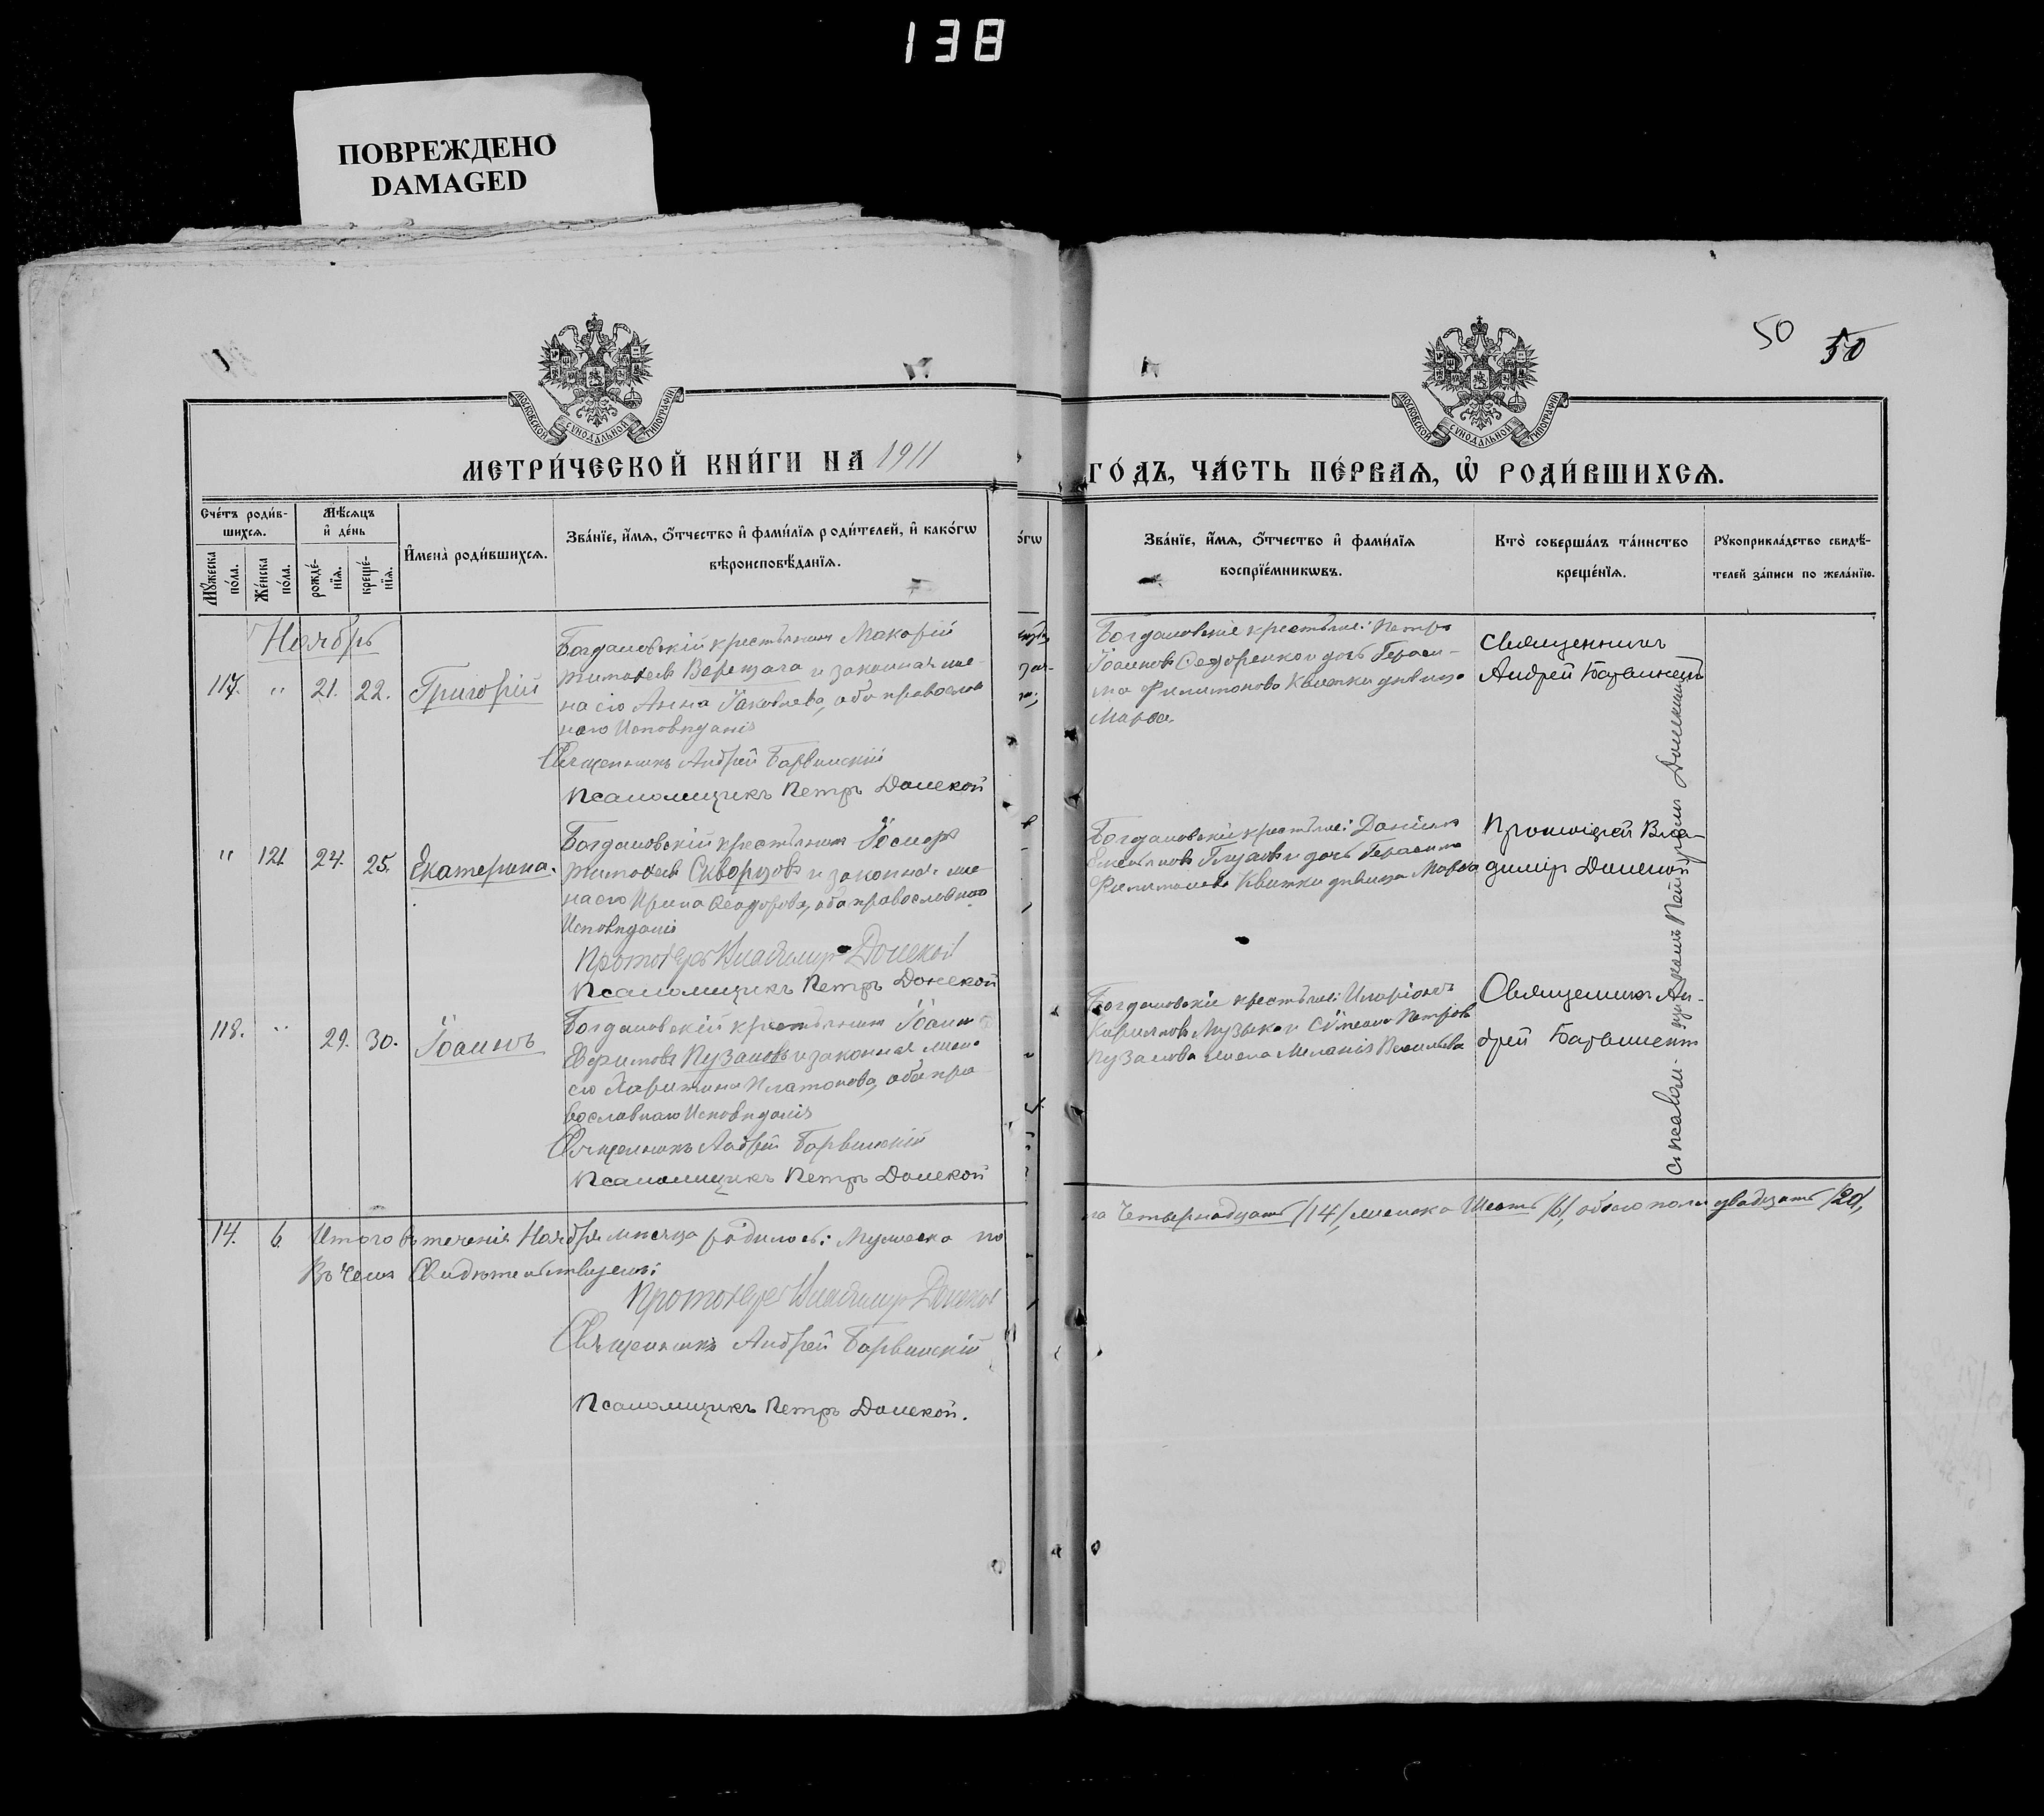 138
ПОВРЕЖДЕНО
DAMAGED
50 50
МОСКОВСКОЙ СѴНОДАЛЬНОЙ ТИПОГРАФІИ
МОСКОВСКОЙ СѴНОДАЛЬНОЙ ТИПОГРАФІИ
МЕТРИ́ЧЕСКОЙ КНИ́ГИ НА 1911
ГО́ДЪ, ЧА́СТЬ ПЕ́РВАѦ, Ѡ РОДИ́ВШИХСѦ.
Сче́тъ роди́в-
шихсѧ.
Мꙋ́жеска по́ла.
Же́нска по́ла.
Мѣ́сѧцъ
и҆ де́нь
рожде́-нїѧ.
креще́-нїѧ.
И҆мена̀ роди́вшихсѧ.
Зва́нїе, и҆́мѧ, ѻ҆́тчество и҆ фами́лїѧ роди́телей, и҆ како́гѡ
вѣроисповѣ́данїѧ.
о́гѡ
Зва́нїе, и҆́мѧ, ѻ҆́тчество и҆ фами́лїѧ
воспрїе́мникѡвъ.
Кто̀ соверша́лъ та́инство
креще́нїѧ.
Рꙋкоприкла́дство свидѣ́-
телей за́писи по жела́нїю.
Ноябрь
117. " 21. 22. Григорій
Богдановскій крестьянинъ Макарій
Тимофеевъ Верещага и законная же-
на его Анна Іаковлева, оба православ
наго Исповѣданія
Священникъ Андрей Барвинскій
Псаломщикъ Петръ Донской
Богдановскіе крестьяне: Петръ
Іоанновъ Сидоренко и дочь Гераси-
ма Филимонова Квитки дѣвица
Марѳа.
Священникъ
Андрей Барвинскій
" 121 24. 25. Екатерина.
Богдановскій крестьянинъ Іосифъ
Тимофеевъ Скворцовъ и законная же-
на его Ирина Ѳеодорова, оба православнаго
Исповѣданія
Протоіерей Владимиръ Донской
Псаломщикъ Петръ Донской
Богдановскіе крестьяне: Даніилъ
Емельяновъ и дочь Герасима
Филимонова Квитки дѣвица Марѳа
Протоіерей Вла-
димір Донской
118. " 29. 30. Іоаннъ
Богдановскій крестьянинъ Іоаннъ
Евфимовъ Пузановъ и законная жена
его Харитина Платонова, оба пра-
вославнаго Исповѣданія
Священникъ Андрей Барвинскій
Псаломщикъ Петръ Донской
Богдановскіе крестьяне: Иларіонъ
Музыка и Петрова
Пузанова жена Меланія Васильева
Священникъ Ан-
дрей Барвинскій
съ псаломщикомъ Петромъ Донскимъ
14. 6. Итого въ теченіи Ноября мѣсяца родилось: Мужеска по
ла Четырнадцать /14/, женска Шесть /6/, обоего пола двадцать /20/,
Въ чемъ Свидѣтельствуемъ:
Протоіерей Владимиръ Донской
Священникъ Андрей Барвинскій
Псаломщикъ Петръ Донской.